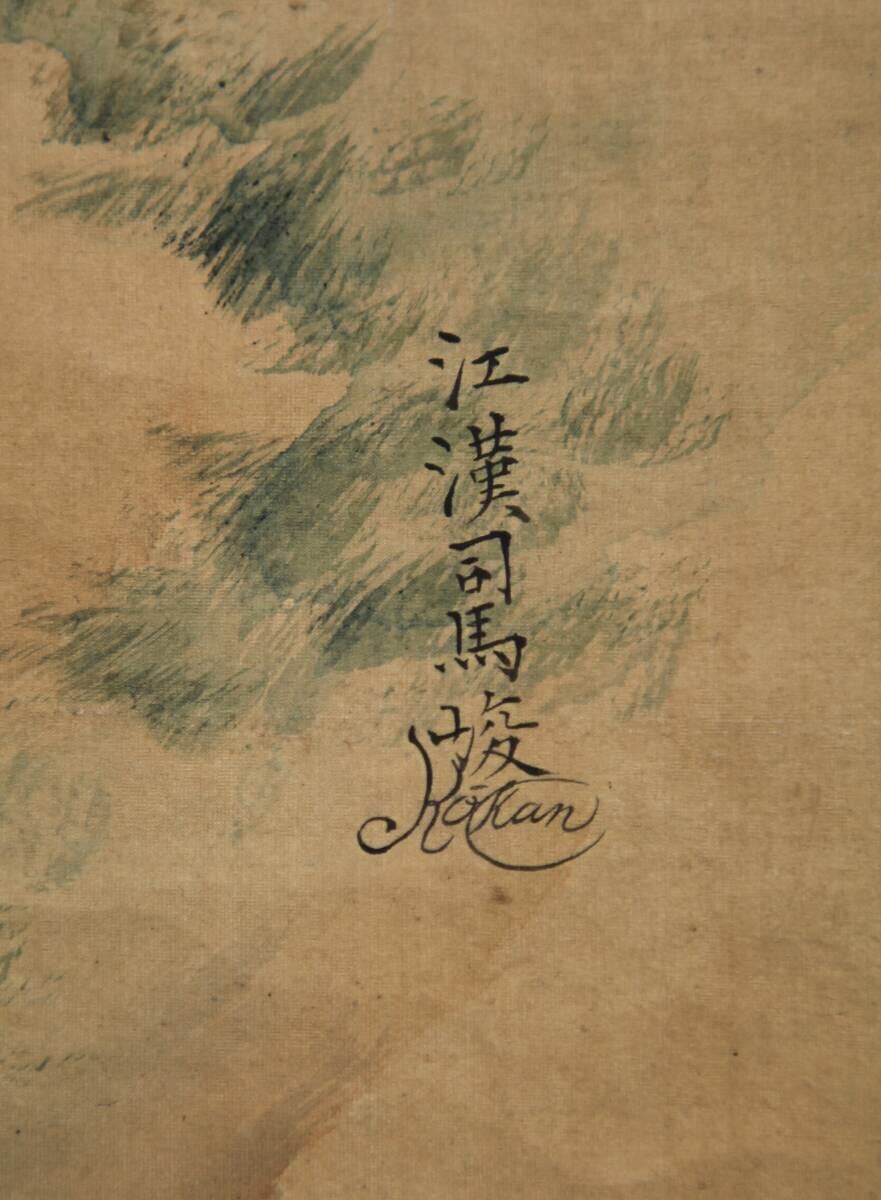 江漢司馬峻
Kōkan